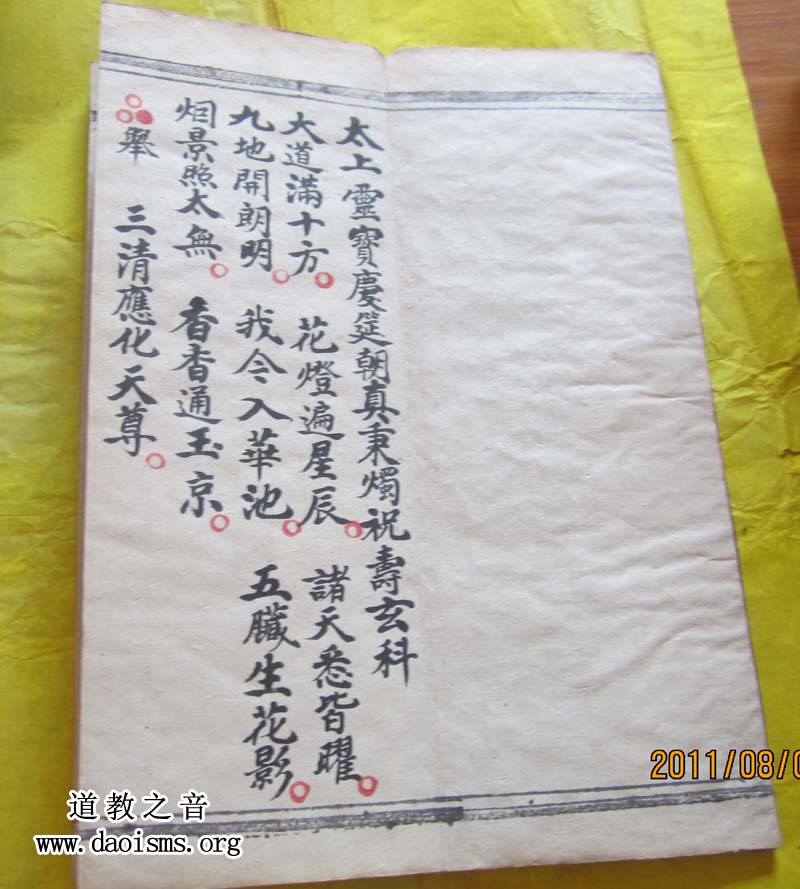 太上靈寶慶筵朝真秉燭祝壽玄科
大道滿十方 花燈遍星辰 諸天悉皆曜
九地開朗明 我今入華池 五臟生花影
烟景照太無 香香通玉京
舉 三清應化天尊
2011/08/0
道教之音
www.daoisms.org